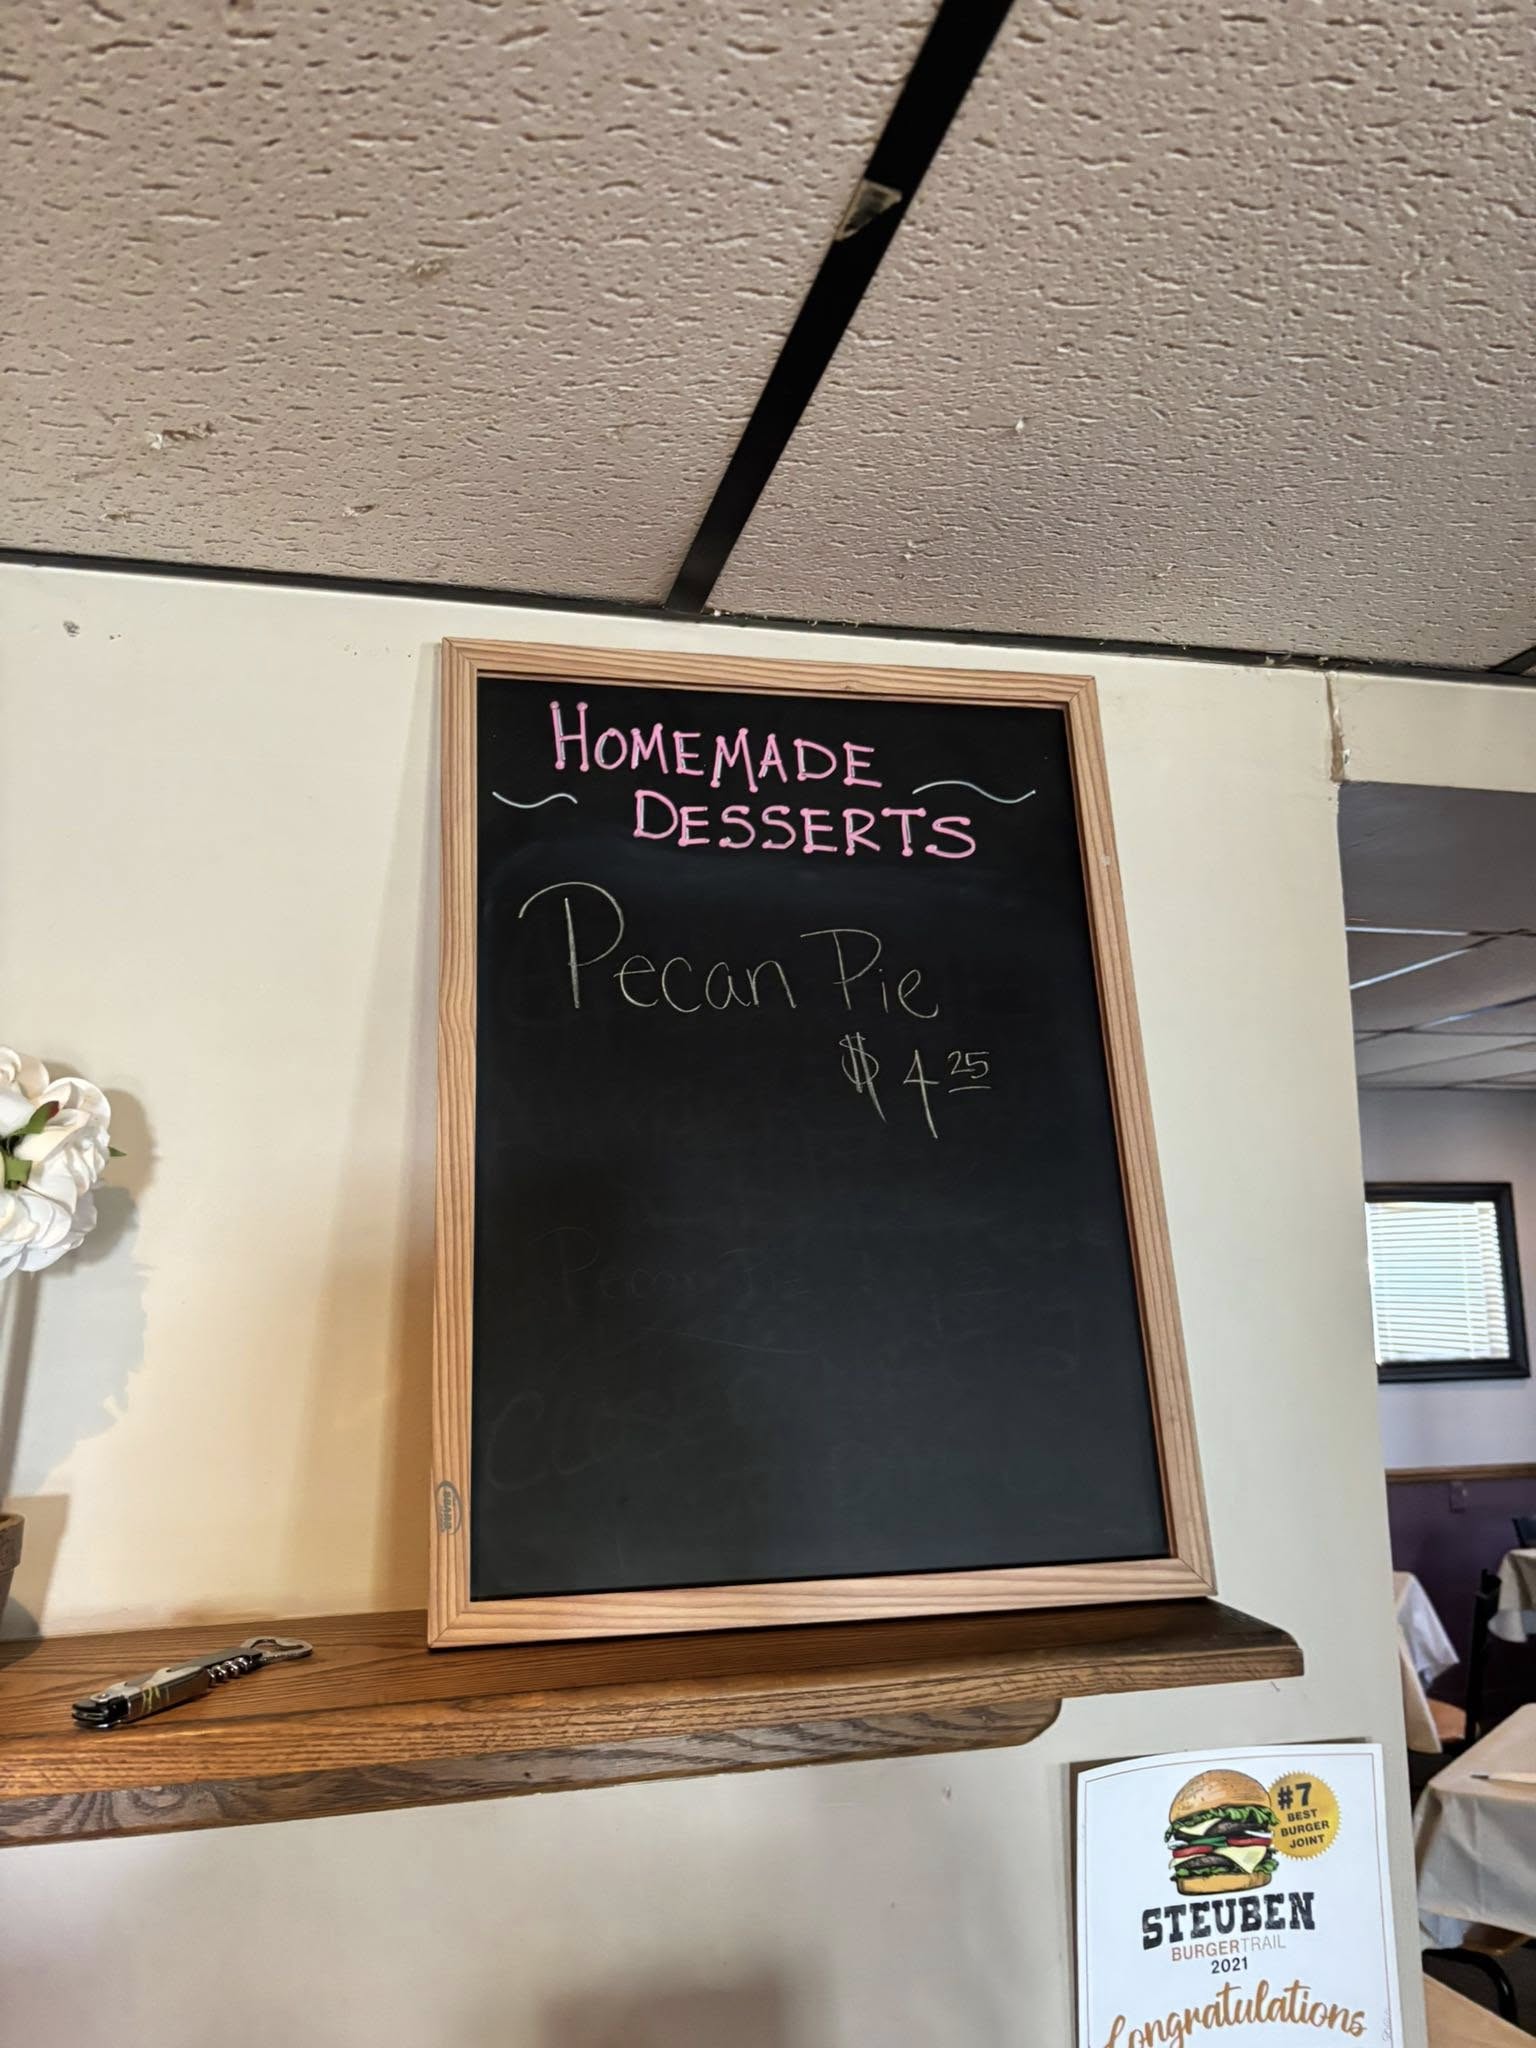 HOMEMADE
DESSERTS
Pecan Pie
$4.25
#7
BEST
BURGER
JOINT
STEUBEN
BURGERTRAIL
2021
Congratulations